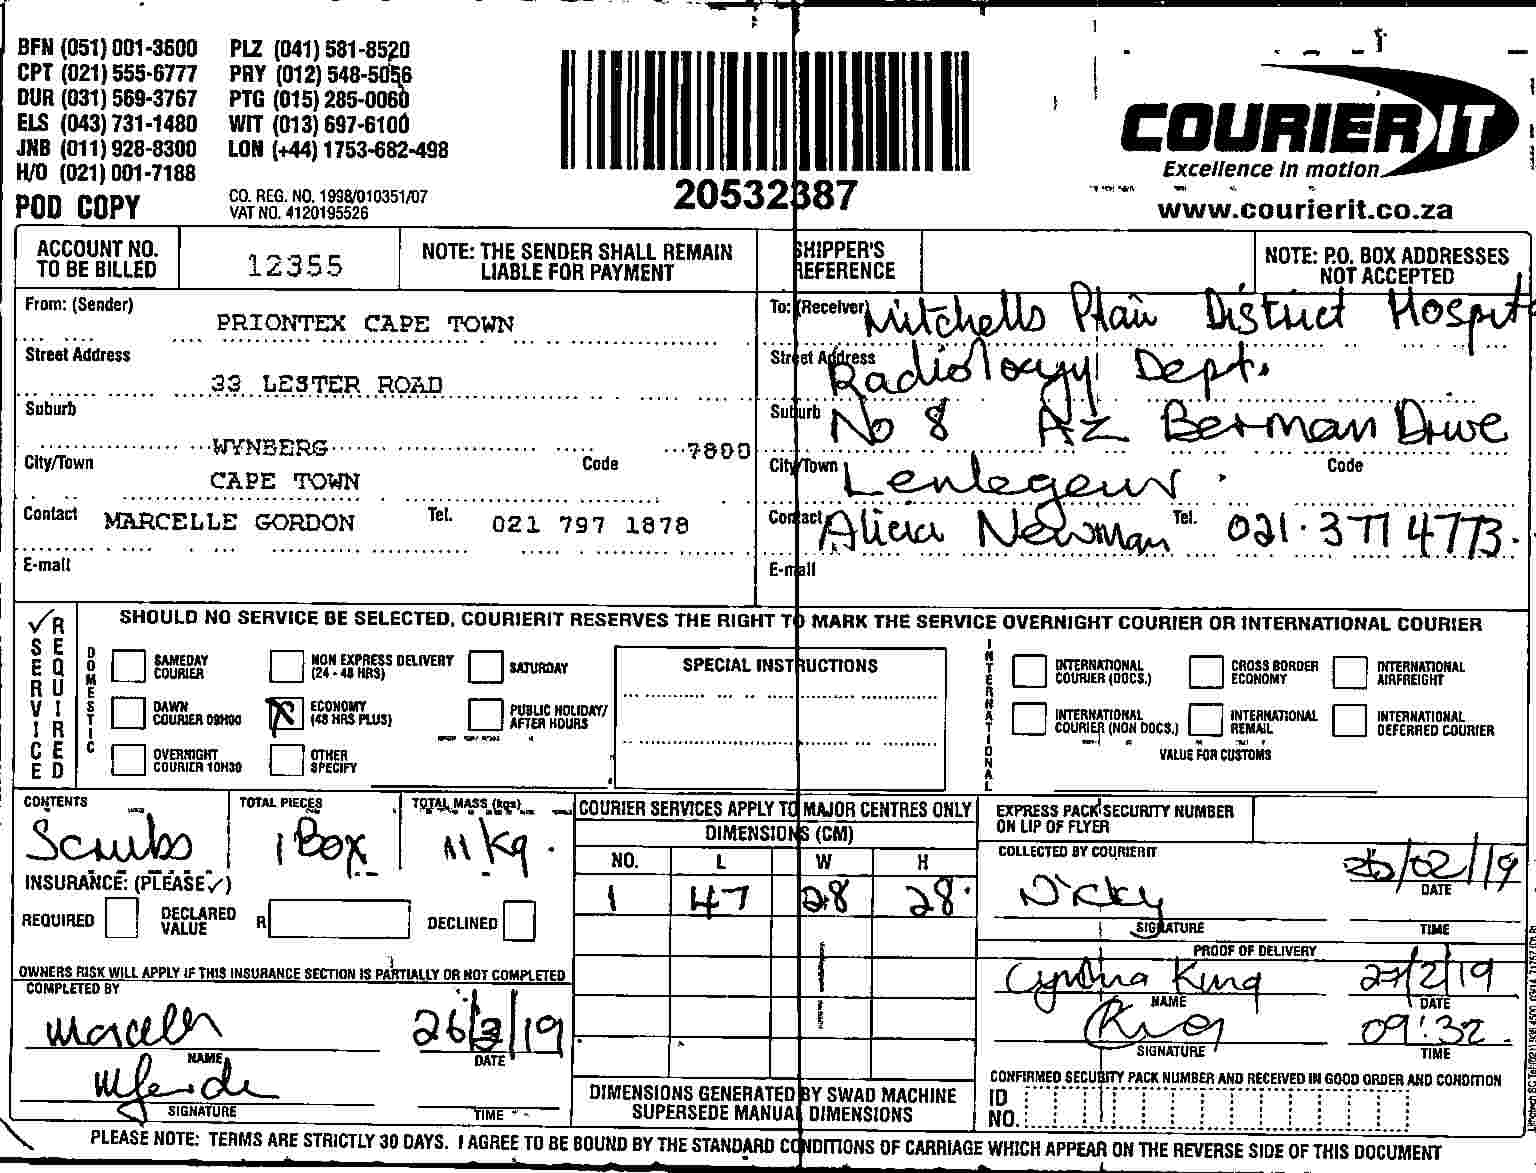 BFN (051) 001-3600 PLZ (041) 581-8520
CPT (021) 555-6777 PRY (012) 548-5056
DUR (031) 569-3767 PTG (015) 285-0060
ELS (043) 731-1480 WIT (013) 697-6100
JNB (011) 928-8300 LON (+44) 1753-682-498
H/O (021) 001-7188
POD COPY
CO. REG. NO. 1998/010351/07
VAT NO. 4120195526
20532387
COURIERIT
Excellence in motion
www.courierit.co.za
ACCOUNT NO. TO BE BILLED 12355
NOTE: THE SENDER SHALL REMAIN LIABLE FOR PAYMENT
SHIPPER'S REFERENCE
NOTE: P.O. BOX ADDRESSES NOT ACCEPTED
From: (Sender) PRIONTEX CAPE TOWN
Street Address 33 LESTER ROAD
Suburb WYNBERG 7800
City/Town CAPE TOWN Code
Contact MARCELLE GORDON Tel. 021 797 1878
E-mail
To: (Receiver) Mitchells Plain District Hospital
Street Address Radiology Dept.
Suburb No 8 AZ Berman Drive
City/Town Lentegeur. Code
Contact Alicia Newman Tel. 021.377 4773.
E-mail
SERVICE REQUIRED
SHOULD NO SERVICE BE SELECTED, COURIERIT RESERVES THE RIGHT TO MARK THE SERVICE OVERNIGHT COURIER OR INTERNATIONAL COURIER
DOMESTIC
SAMEDAY COURIER
NON EXPRESS DELIVERY (24 - 48 HRS)
SATURDAY
DAWN COURIER 09H00
X ECONOMY (48 HRS PLUS)
PUBLIC HOLIDAY/ AFTER HOURS
OVERNIGHT COURIER 10H30
OTHER SPECIFY
SPECIAL INSTRUCTIONS
INTERNATIONAL
INTERNATIONAL COURIER (DOCS.)
CROSS BORDER ECONOMY
INTERNATIONAL AIRFREIGHT
INTERNATIONAL COURIER (NON DOCS.)
INTERNATIONAL REMAIL
INTERNATIONAL DEFERRED COURIER
VALUE FOR CUSTOMS
CONTENTS Scrubs
TOTAL PIECES 1 Box
TOTAL MASS (kgs) 11 kg.
INSURANCE: (PLEASE ✓)
REQUIRED DECLARED VALUE R DECLINED
OWNERS RISK WILL APPLY IF THIS INSURANCE SECTION IS PARTIALLY OR NOT COMPLETED
COMPLETED BY
NAME
26/2/19
DATE
SIGNATURE
TIME
COURIER SERVICES APPLY TO MAJOR CENTRES ONLY
DIMENSIONS (CM)
NO. L W H
1 47 28 28
DIMENSIONS GENERATED BY SWAD MACHINE SUPERSEDE MANUAL DIMENSIONS
EXPRESS PACK SECURITY NUMBER ON LIP OF FLYER
COLLECTED BY COURIERIT
Nicky
SIGNATURE
/02/19
DATE
TIME
PROOF OF DELIVERY
Cynthia King
NAME
27/2/19
DATE
King
SIGNATURE
09:32
TIME
CONFIRMED SECURITY PACK NUMBER AND RECEIVED IN GOOD ORDER AND CONDITION
ID NO.
PLEASE NOTE: TERMS ARE STRICTLY 30 DAYS. I AGREE TO BE BOUND BY THE STANDARD CONDITIONS OF CARRIAGE WHICH APPEAR ON THE REVERSE SIDE OF THIS DOCUMENT